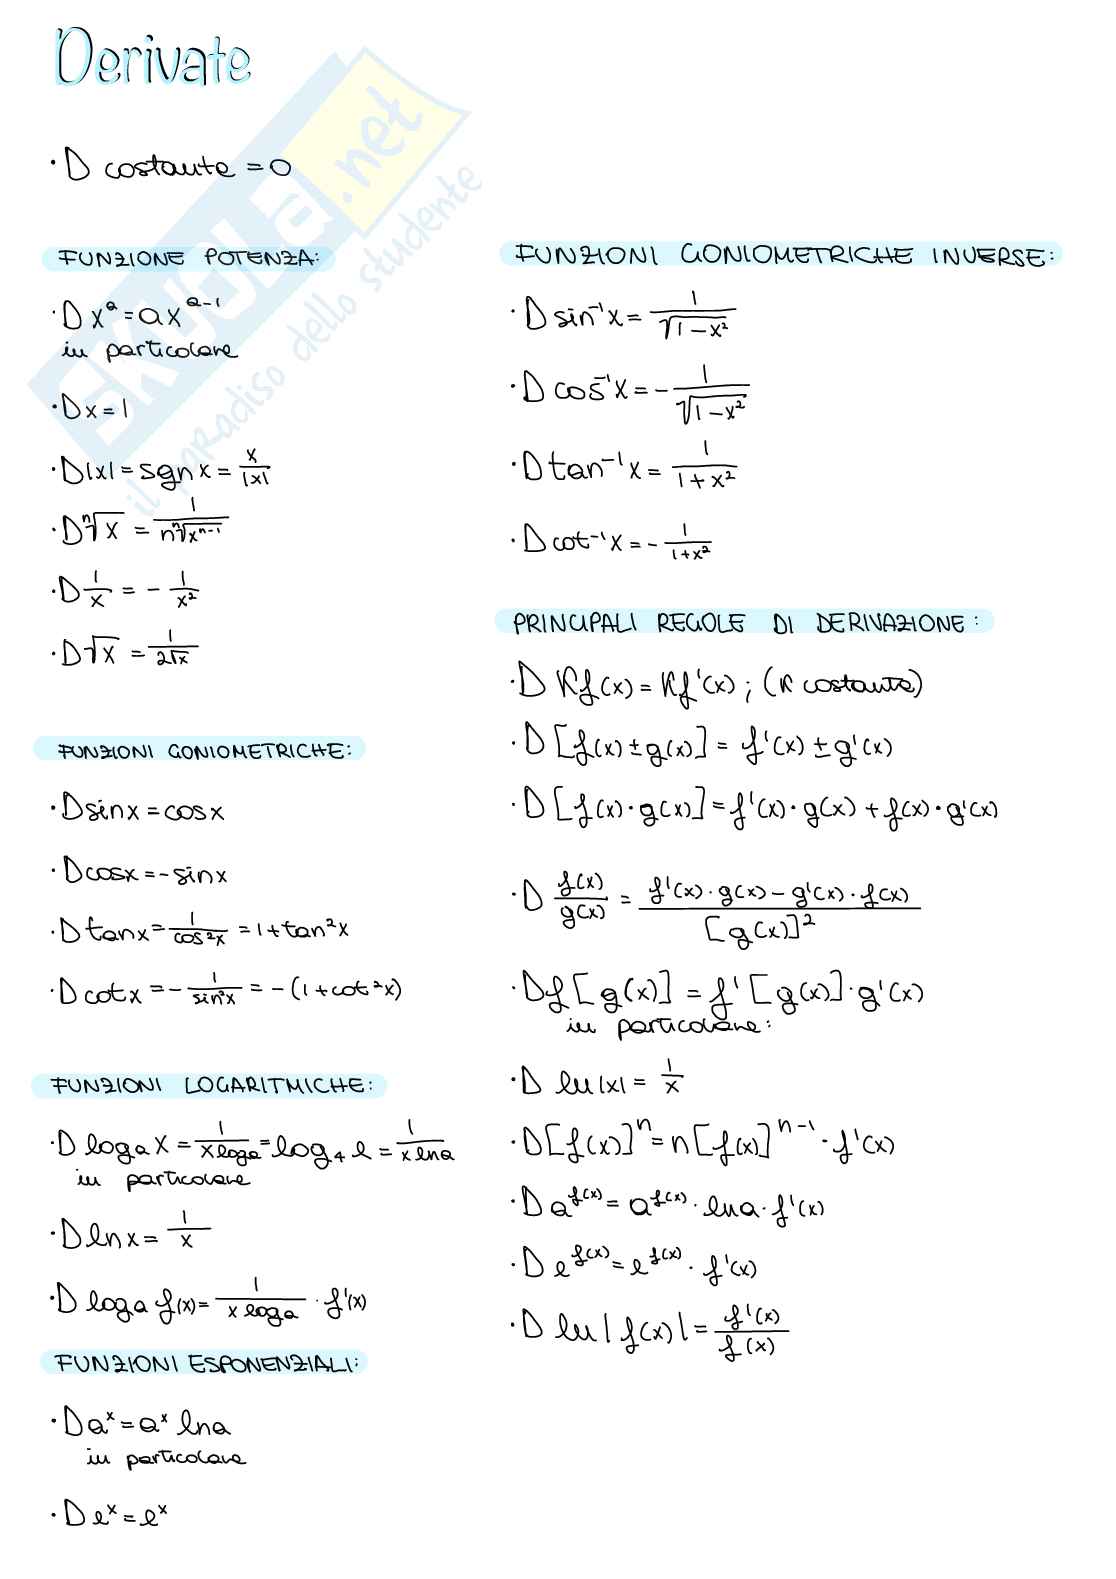 Derivate
· D costante = 0
FUNZIONE POTENZA:
· D xᵃ = a xᵃ⁻¹
in particolare
· D x = 1
· D |x| = sgn x = x/|x|
· D ⁿ√x = 1/(n ⁿ√xⁿ⁻¹)
· D 1/x = - 1/x²
· D √x = 1/(2√x)
FUNZIONI GONIOMETRICHE:
· D sin x = cos x
· D cos x = - sin x
· D tan x = 1/cos²x = 1 + tan²x
· D cot x = - 1/sin²x = - (1 + cot²x)
FUNZIONI LOGARITMICHE:
· D loga x = 1/(x loga) = log₄ e = 1/(x lna)
in particolare
· D ln x = 1/x
· D loga f(x) = 1/(x loga) · f'(x)
FUNZIONI ESPONENZIALI:
· D aˣ = aˣ lna
in particolare
· D eˣ = eˣ
FUNZIONI GONIOMETRICHE INVERSE:
· D sin⁻¹x = 1/√(1 - x²)
· D cos⁻¹x = - 1/√(1 - x²)
· D tan⁻¹x = 1/(1 + x²)
· D cot⁻¹x = - 1/(1 + x²)
PRINCIPALI REGOLE DI DERIVAZIONE:
· D K f(x) = K f'(x) ; (K costante)
· D [f(x) ± g(x)] = f'(x) ± g'(x)
· D [f(x) · g(x)] = f'(x) · g(x) + f(x) · g'(x)
· D f(x)/g(x) = (f'(x) · g(x) - g'(x) · f(x))/[g(x)]²
· D f [g(x)] = f' [g(x)] · g'(x)
in particolare:
· D ln |x| = 1/x
· D [f(x)]ⁿ = n [f(x)]ⁿ⁻¹ · f'(x)
· D a^f(x) = a^f(x) · lna · f'(x)
· D e^f(x) = e^f(x) · f'(x)
· D ln | f(x) | = f'(x)/f(x)
SKUOLA.net
il paradiso dello studente